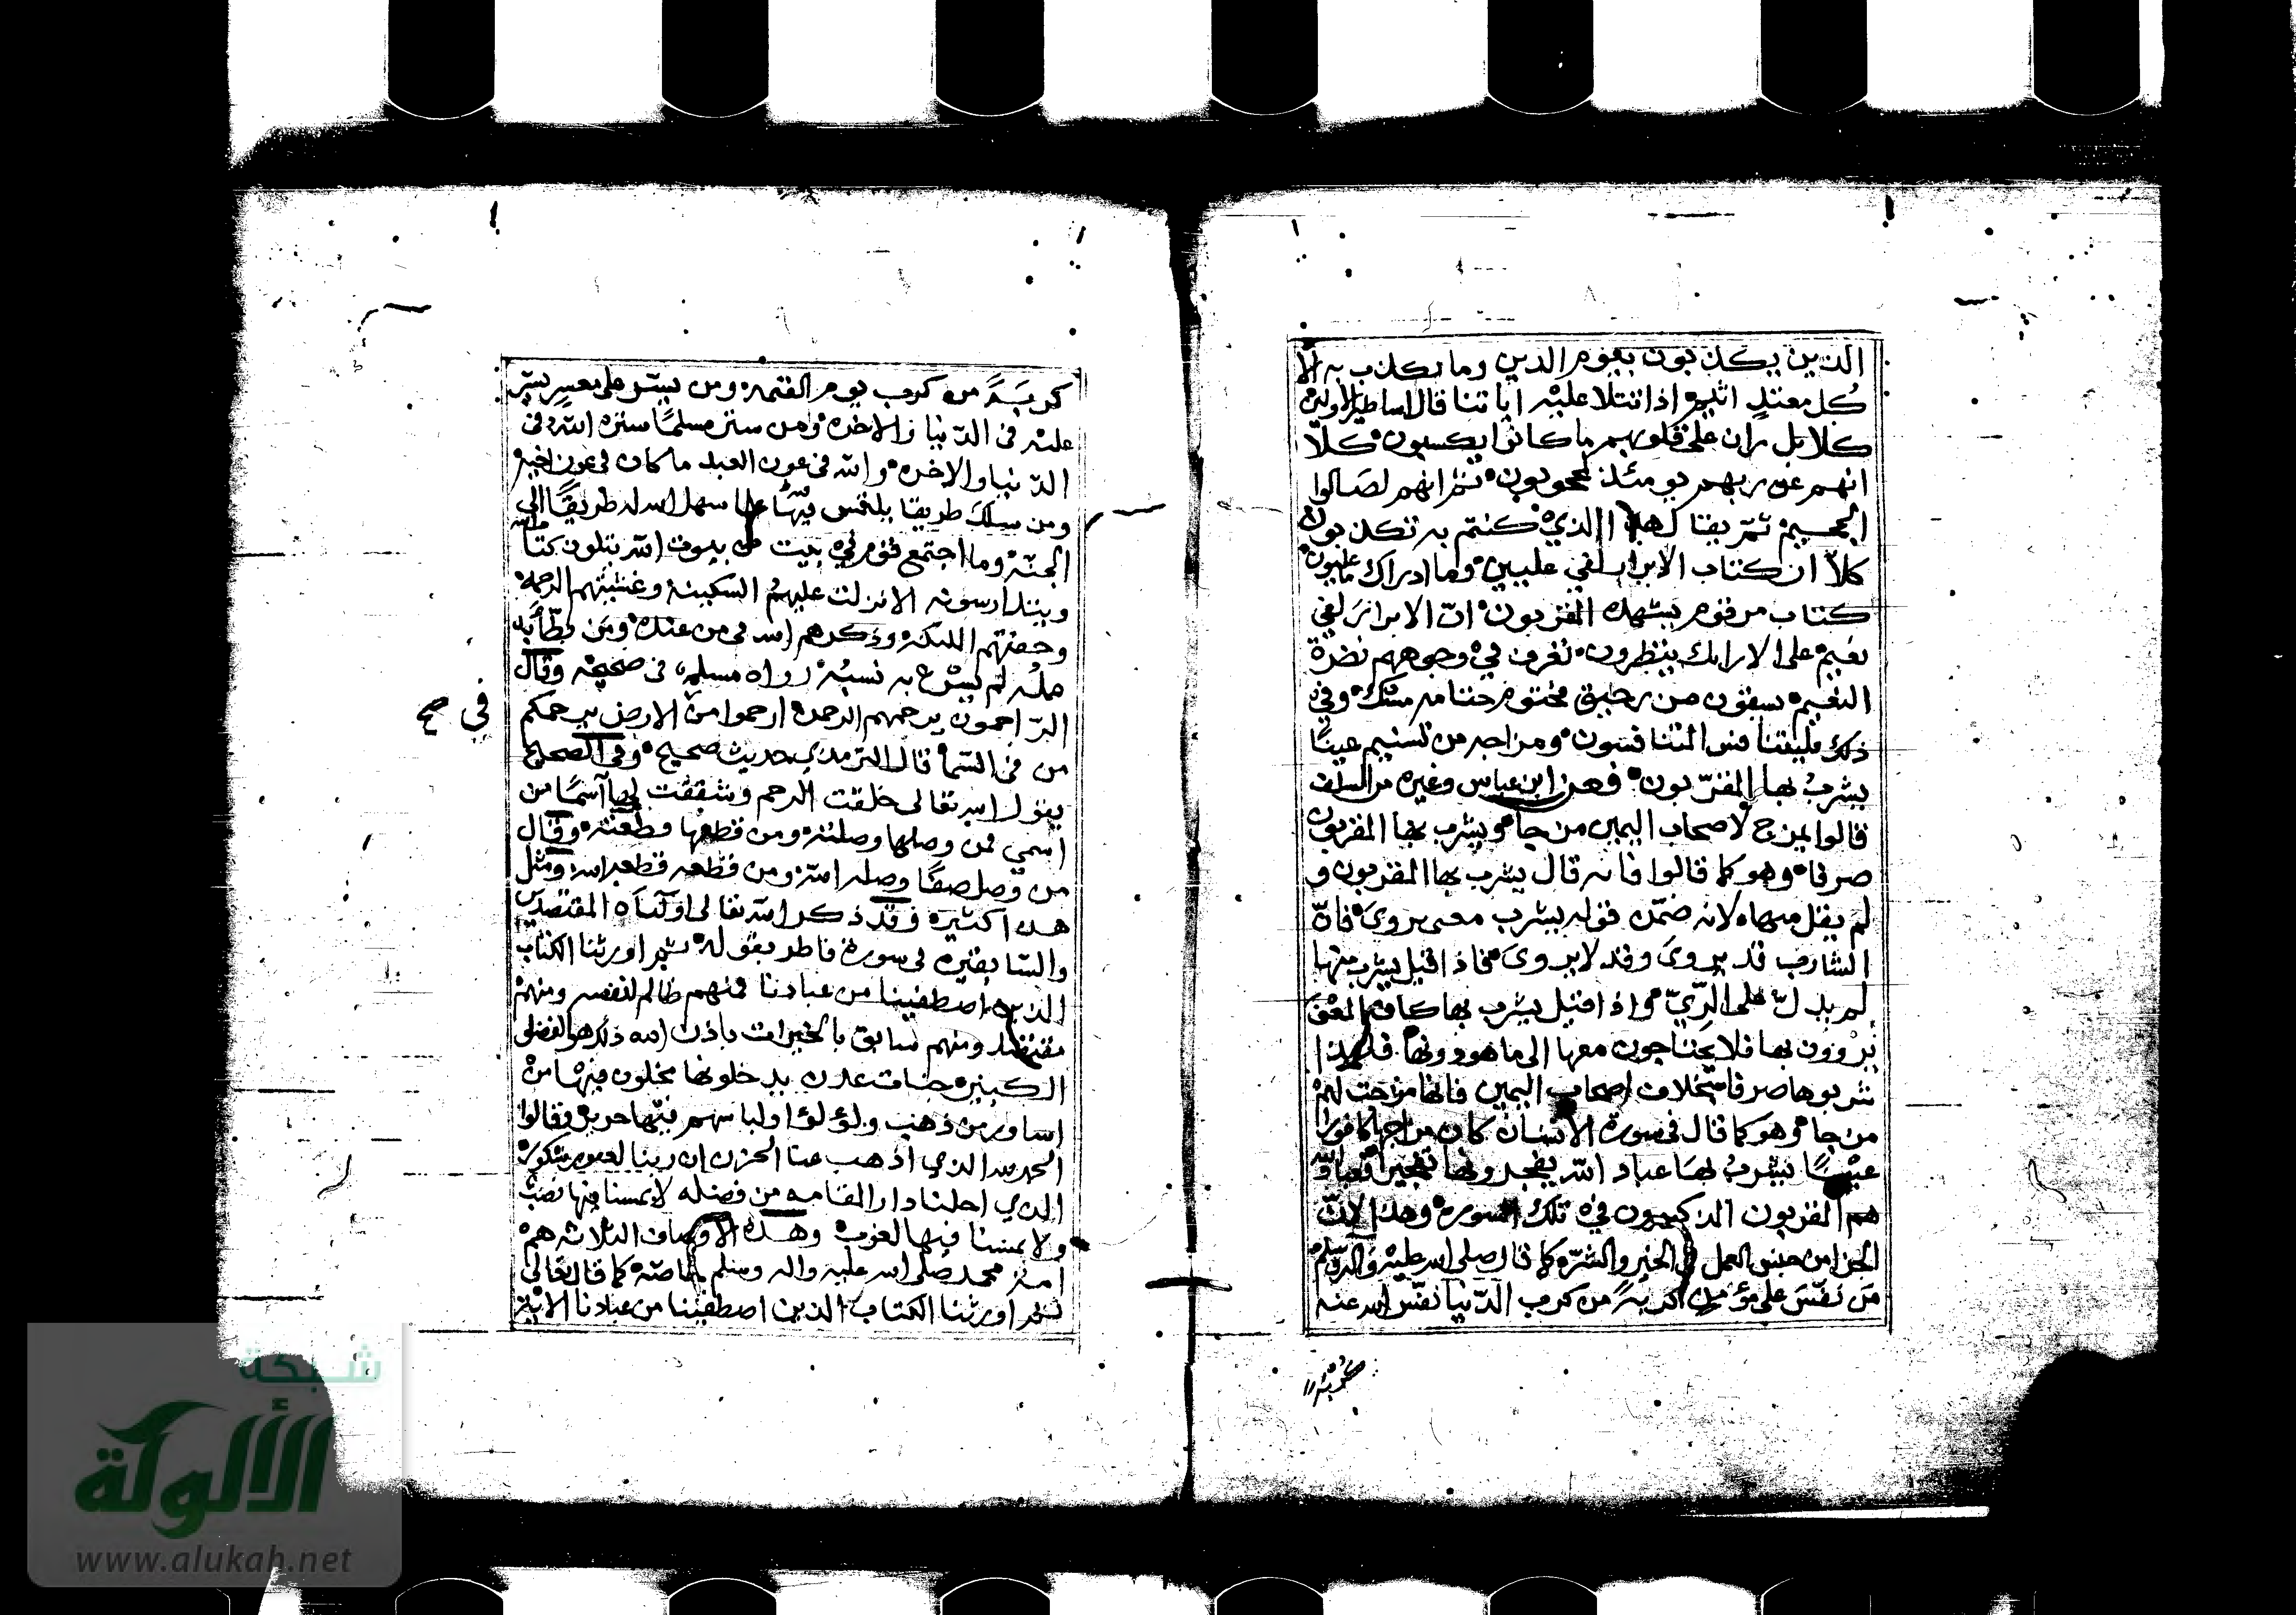 الذين يكذبون بيوم الدين وما يكذب به الا
كل معتد اثيم اذا تتلا عليه اياتنا قال اساطير الاولين
كلا بل ران على قلوبهم ما كانوا يكسبون كلا
انهم عن ربهم يومئذ لمحجوبون ثم انهم لصالوا
الجحيم ثم يقال هذا الذي كنتم به تكذبون
كلا ان كتاب الابرار لفي عليين وما ادراك ما عليون
كتاب مرقوم يشهده المقربون ان الابرار لفي
نعيم على الارايك ينظرون تعرف في وجوههم نضرة
النعيم يسقون من رحيق مختوم ختامه مسك وفي
ذلك فليتنافس المتنافسون ومزاجه من تسنيم عينا
يشرب بها المقربون فعن ابن عباس وغيره من السلف
قالوا يمزج لاصحاب اليمين مزجا ويشرب بها المقربون
صرفا وهو كما قالوا فانه قال يشرب بها المقربون و
لم يقل منها لانه ضمن قوله يشرب معنى يروى فان
الشارب قد يروى وقد لا يروى فاذا قيل يشرب منها
لم يدل على الري واذا قيل يشرب بها كان المعنى
يروون بها فلا يحتاجون معها الى ما هو دونها فلهذا
شربوها صرفا بخلاف اصحاب اليمين فانها مزجت لهم
مزجا وهو كما قال في سورة الانسان كان مزاجها كافورا
عينا يشرب بها عباد الله يفجرونها تفجيرا فعباد الله
هم المقربون المذكورون في تلك السورة وهذا لان
الجزا من جنس العمل في الخير والشر كما قال صلى الله عليه واله وسلم
من نفس على مؤمن كربة من كرب الدنيا نفس الله عنه
كربة
كربة من كرب يوم القيمة ومن يسر على معسر يسر
عليه في الدنيا والاخرة ومن ستر مسلما ستره الله في
الدنيا والاخرة والله في عون العبد ما كان في عون اخيه
ومن سلك طريقا يلتمس فيه علما سهل الله له طريقا الى
الجنة وما اجتمع قوم في بيت من بيوت الله يتلون كتاب الله
ويتدارسونه الا نزلت عليهم السكينة وغشيتهم الرحمة
وحفتهم الملئكة وذكرهم الله في من عنده ومن بطأ به
عمله لم يسرع به نسبه رواه مسلم في صحيحه وقال
الراحمون يرحمهم الرحمن ارحموا من في الارض يرحمكم
في صح
من في السما قال الترمذي حديث صحيح وفي الصحيح
يقول الله تعالى خلقت الرحم وشققت لها اسما من
اسمي فمن وصلها وصلته ومن قطعها قطعته وقال
من وصل صفا وصله الله ومن قطعه قطعه الله ومثل
هذا كثيرة وقد ذكر الله تعالى اولياه المقتصدين
والسابقين في سورة فاطر بقوله ثم اورثنا الكتاب
الذين اصطفينا من عبادنا فمنهم ظالم لنفسه ومنهم
مقتصد ومنهم سابق بالخيرات باذن الله ذلك هو الفضل
الكبير جنات عدن يدخلونها يحلون فيها من
اساور من ذهب ولؤلؤا ولباسهم فيها حرير وقالوا
الحمد لله الذي اذهب عنا الحزن ان ربنا لغفور شكور
الذي احلنا دار المقامه من فضله لا يمسنا فيها نصب
ولا يمسنا فيها لغوب وهذه الاصناف الثلاثه هم
امة محمد صلى الله عليه واله وسلم خاصة كما قال تعالى
ثم اورثنا الكتاب الذين اصطفينا من عبادنا الاية
شبكة
الألوكة
www.alukah.net